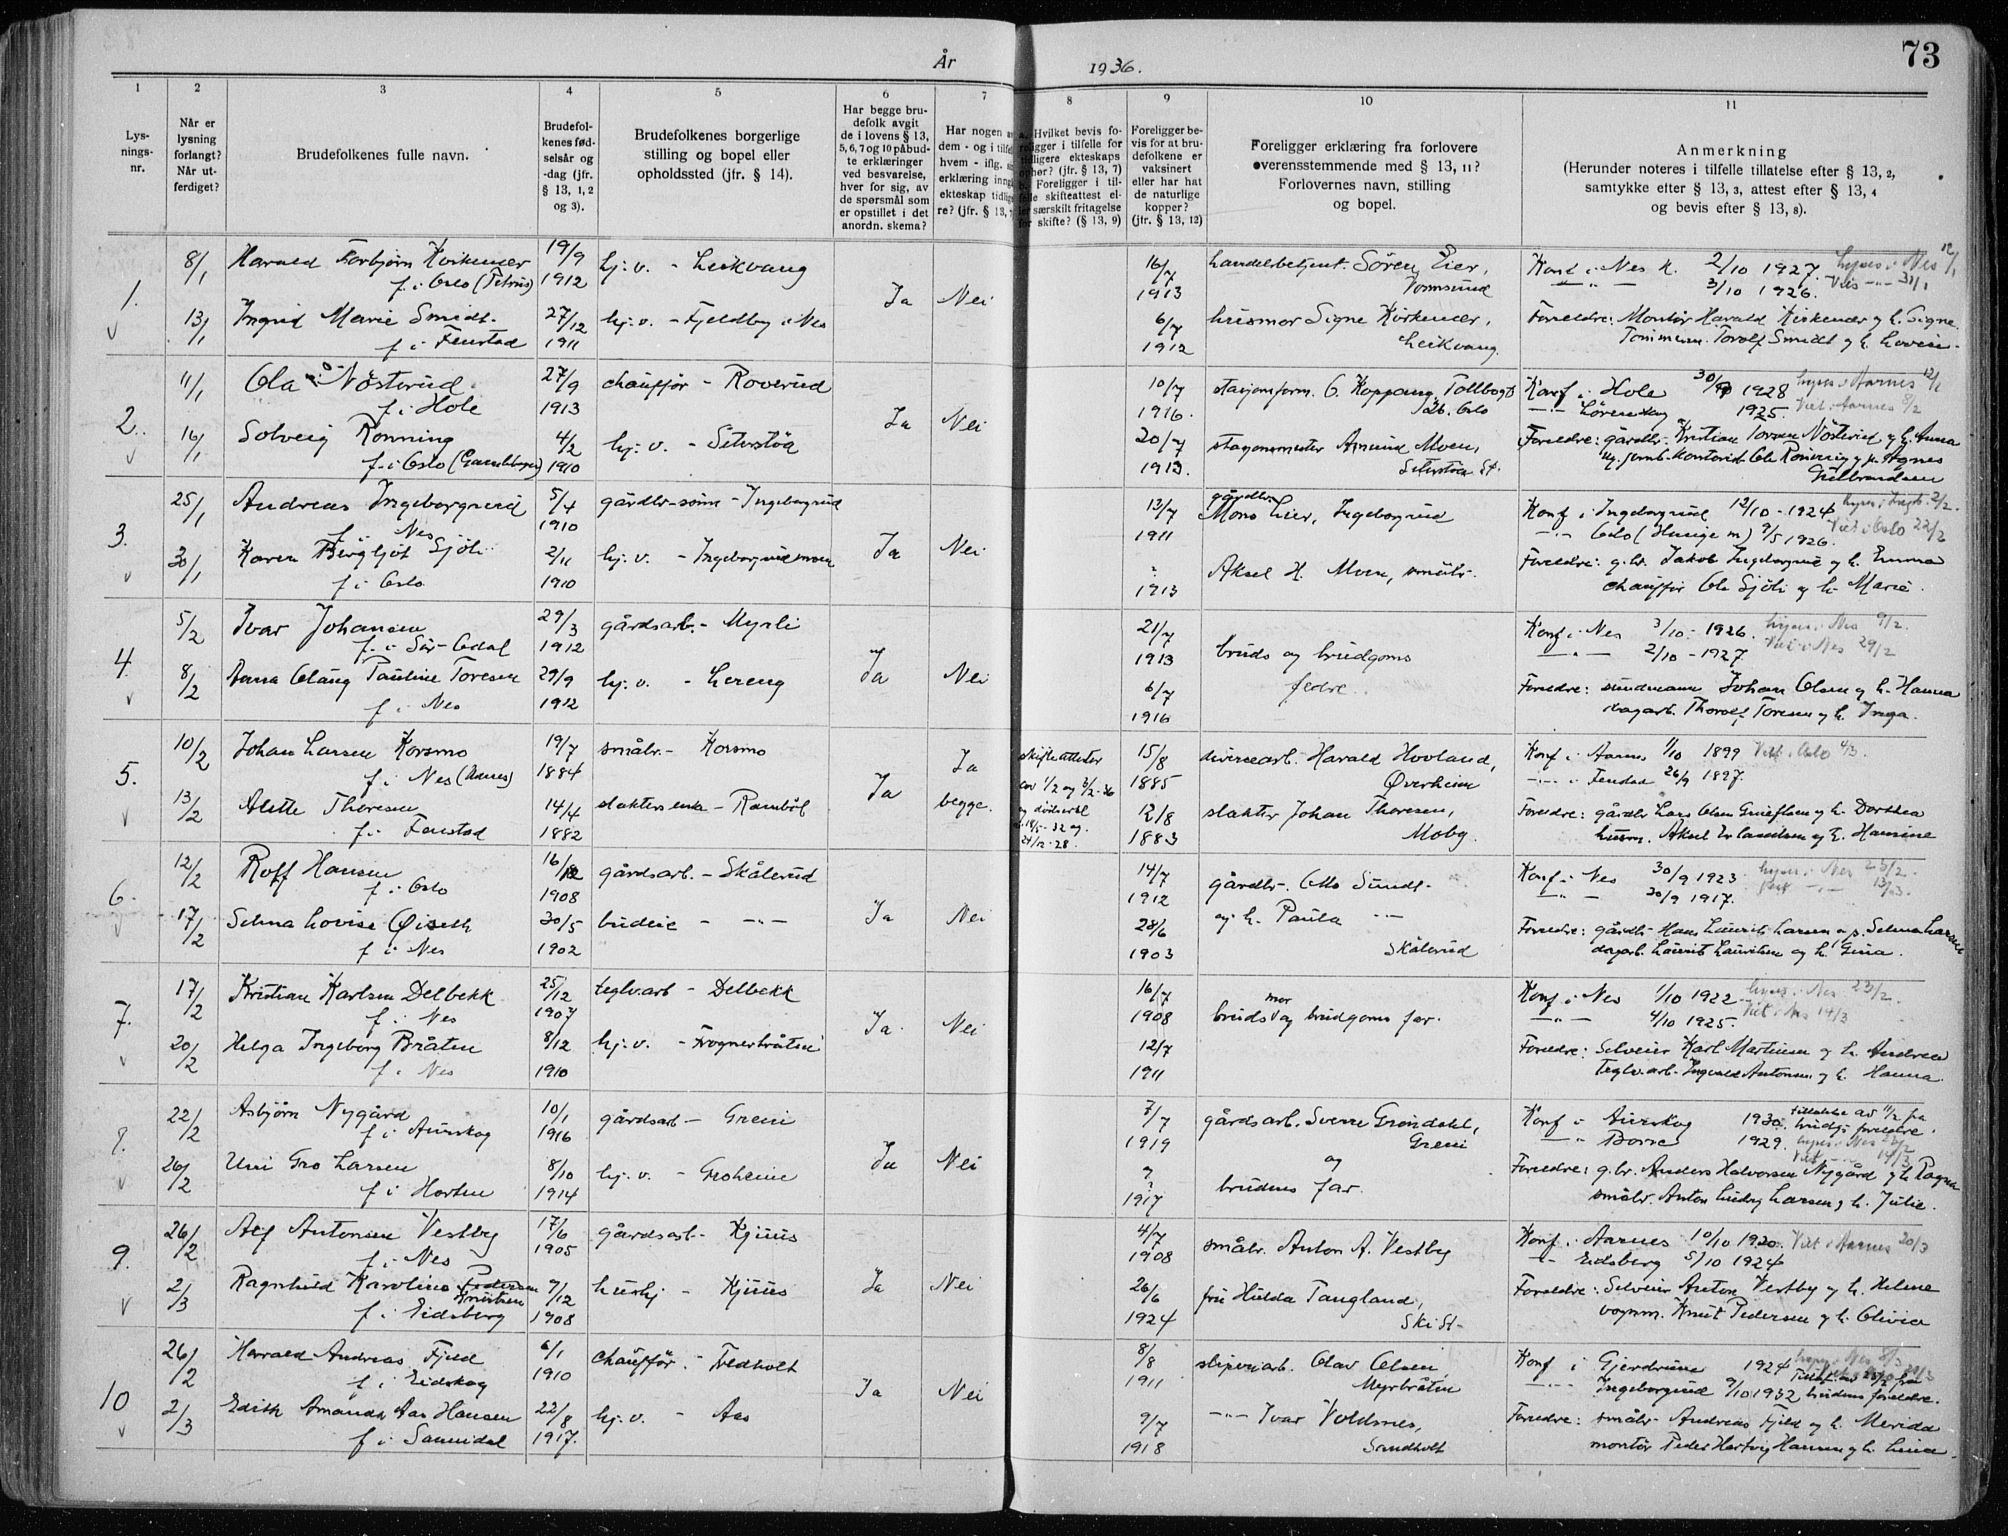 73
År 1936.
1
Lys-
nings-
nr.
2
Når er
lysning
forlangt?
Når ut-
ferdiget?
3
Brudefolkenes fulle navn.
4
Brudefol-
kenes fød-
selsår og
-dag (jfr.
§ 13, 1, 2
og 3).
5
Brudefolkenes borgerlige
stilling og bopel eller
opholdssted (jfr. § 14).
6
Har begge bru-
defolk avgit
de i lovens § 13,
5, 6, 7 og 10 påbud-
te erklæringer
ved besvarelse,
hver for sig, av
de spørsmål som
er opstillet i det
anordn. skema?
7
Har nogen
dem - og i
hvem - iflg.
erklæring
ekteskap
re? (jfr. § 13,
8
Hvilket bevis fo-
religger i tilfelle for
tidligere ekteskaps
opher? (jfr. § 13, 7)
b. Foreligger i til-
skifteattest el-
særskilt fritagelse
for skifte? (§ 13, 9)
9
Foreligger be-
vis for at bru-
defolkene er
vaksinert
eller har hat
de naturlige
kopper?
(jfr. § 13, 12)
10
Foreligger erklæring fra forlovere
overensstemmende med § 13, 11?
Forlovernes navn, stilling
og bopel.
11
Anmerkning
(Herunder noteres i tilfelle tillatelse efter § 13, 2,
samtykke efter § 13, 3, attest efter § 13, 4
og bevis efter § 13, 8).
1.
8/1 Harald Torbjørn Kirkenær 19/9 hj.v. - Leikvang
f. i Oslo (Petrus) 1912
Ja Nei
16/7 1913 handelsbetjent. Sören Eier,
Vormsund
Konf. i Nes K. 2/10 1927. lyses i Nes 12/1
3/10 1926. Viet 31/1
13/1 Ingrid Marie Smidt. 27/12 hj.v. - Fjeldby i Nes
f i Fenstad 1911
6/7 1912 husmor Signe Kirkenær,
Leikvang.
Foreldre: Montør Harald Kirkenær og h. Signe
Tömmerm. Torolf Smidt og h. Lovise.
2.
11/1 Ola Nösterud 27/9 chauffør - Roverud
f. i Hole 1913
Ja Nei
10/7 1916. stasjonsform. O. Koppang, Tollbogt
Oslo
Konf i Hole 1928 lyses i Aarnes 12/1
Lörenskog 1925. Viet i Aarnes 8/2
16/1 Solveig Rönning 4/2 hj.v. - Seterstöa
f. i Oslo 1910
20/7 1913. Amund Moen,
Seterstöa St.
Foreldre: gårdbr. Kristian Nösterud og h. Anna
Ole Rönning og p. Agnes
Gulbrandsen
3.
25/1 Andreas Ingeborgrud 5/4 gårdbr-sönn - Ingeborgrud
f. i Nes 1910
Ja Nei
13/7 1911 gårdbr. Mons Lier, Ingeborgrud
Konf i Ingeborgrud 12/10 - 1924 2/2.
Oslo 9/5 1926. Viet i Oslo 22/2
30/1 Karen Bergljot Sjöli 2/11 hj.v. - Ingeborgrudmoen
f i Oslo 1910
? 1913 Aksel H. Moen, småbr.
Foreldre: g.br. Jakob Ingeborgrud og h. Emma
chauffør Ole Sjöli og h. Marie.
4.
5/2 Ivar Johansen 29/3 gårdsarb. - Myrli
f. i Sör-Odal 1912
Ja Nei
21/7 1913 bruds og brudgoms
fedre.
Konf i Nes 3/10 - 1926. lyses i Nes 9/2.
2/10 - 1927 Viet i Nes 29/2
8/2 Anna Olaug Pauline Toresen 29/9 hj.v. - Lereng
f i Nes 1912
6/7 1916
Foreldre: Johan Olsen og h. Hanna
dagarb. Thorolf Toresen og h. Inga.
5.
10/2 Johan Larsen Korsmo 19/7 småbr. - Korsmo
f. i Nes (Aarnes) 1884
Ja Ja begge.
skifteattester
av 1/2 og 3/2-36
15/8 1885 diversearb. Harald Hovland,
Överheim
Konf i Aarnes 1/10 1899 Viet i Oslo 4/3.
Fenstad 26/9 1897.
13/2 Alette Thoresen 14/4 slakters enke - Rambøl
f. i Fenstad 1882
12/8 1883 slakter Johan Thoresen,
Moby.
Foreldre: gårdbr Lars Olsen og h. Dorthea
husm. Aksel Erlandsen og h. Hansine
6.
12/2 Rolf Hansen 16/12 gårdsarb. - Skålerud
f. i Oslo 1908
Ja Nei
14/7 1912 gårdbr. Otto Sundt
og h. Paula
Skålerud
Konf i Nes 30/9 1923 lyses i Nes 23/2.
30/9 1917. 13/3.
17/2 Selma Lovise Öiseth 30/5 budeie
f. i Nes 1902
28/6 1903
Foreldre: gårdbr Hans Laurits Larsen og p. Selma Larsen
dagarb. Laurits Lauritsen og h. Gina.
7.
17/2 Kristian Karlsen Delbekk 25/12 teglv.arb - Delbekk
f. i Nes 1907
Ja. Nei
16/7 1908 bruds mor og brudgoms far.
Konf i Nes 1/10 1922 lyses i Nes 23/2.
4/10 1925. Viet i Nes 14/3
20/2 Helga Ingeborg Bråten 8/12 hj.v. - Frognerbråten
f i Nes 1910
12/7 1911
Foreldre: Selveier Karl Martinsen og h. Andrea
Teglv.arb. Ingvald Antonsen og h. Hanna.
8.
22/2 Asbjörn Nygård 10/1 gårdsarb - Greni
f i Aurskog 1916
Ja Nei
7/7 1919 gårdsarb. Sverre Gröndahl,
Greni
og
Konf i Aurskog 1930. tillatelse av 11/2 fra
brudgs foreldre.
Borre 1929. lyses i Nes
Viet 14/3
26/2 Uni Gro Larsen 8/10 hj.v. - Groheim
f i Horten 1914
? 1917 brudens far.
Foreldre: g.br. Anders Halvorsen Nygård og h. Ragna
småbr. Anton Ludvig Larsen og h. Julie.
9.
26/2 Alf Antonsen Vestby 17/6 gårdsarb - Kjuus
f. i Nes 1905
Ja Nei
4/7 1908 småbr. Anton A. Vestby
Konf. i Aarnes 10/10 1920. Viet i Aarnes 20/3
Eidsberg 5/10 1924
2/3 Ragnhild Karoline Pedersen Knutsen 7/12 hushj - Kjuus
f. i Eidsberg 1908
26/6 1924 fru Hulda Tangland,
Ski St-
Foreldre: Selveier Anton Vestby og h. Helene
Knut Pedersen og h. Olivia
10
26/2 Harald Andreas Fjeld 6/1 chauffør. - Fredholt
f i Eidskog 1910
Ja Nei
8/8 1911 sliperiarb. Olav Olsen,
Myrbråten
Konf i Gjerdrum 1924 lyses i Nes 8/3
Ingeborgrud 9/10 1932 brudens foreldre.
2/3 Edith Amanda Aas Hansen 22/8 hj.v. - Aas
f i Sannidal 1917.
9/7 1918 Ivar Voldmes,
Sandholt
Foreldre: småbr. Andreas Fjeld og h. Merida
montör Peder Hartvig Hansen og h. Lina